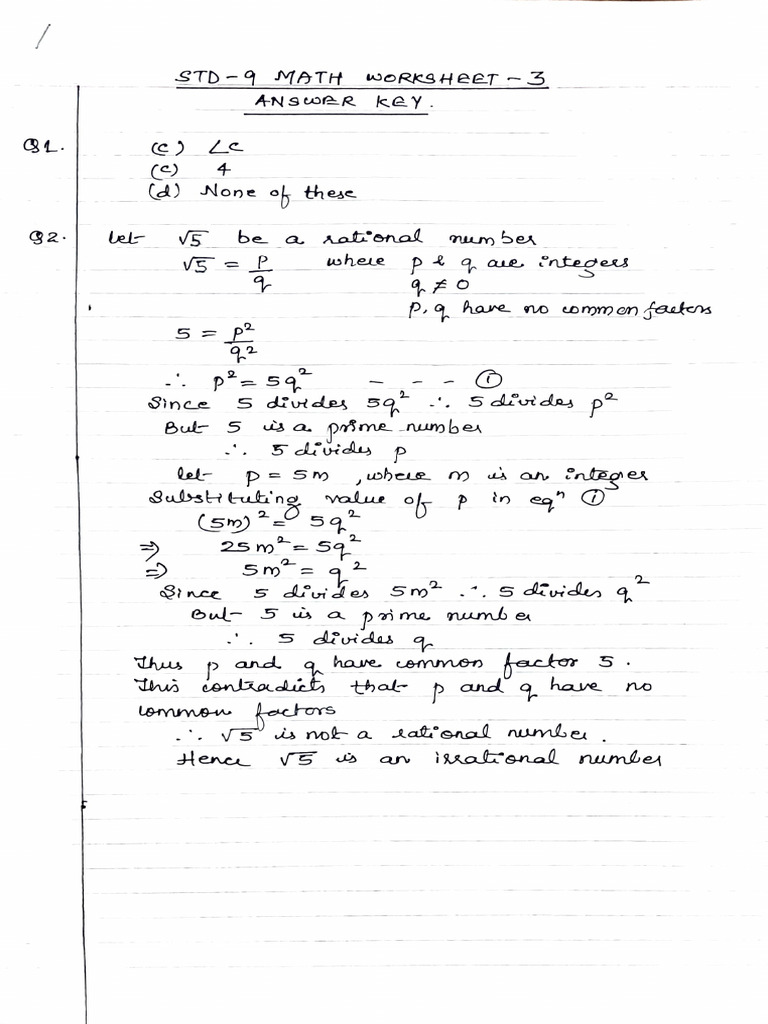 STD-9 MATH WORKSHEET-3
ANSWER KEY.
Q1. (c) ∠C
(c) 4
(d) None of these
Q2. Let √5 be a rational number
√5 = p/q where p & q are integers
q ≠ 0
p, q have no common factors
5 = p²/q²
∴ p² = 5q² - - - ①
Since 5 divides 5q² ∴ 5 divides p²
But 5 is a prime number
∴ 5 divides p
let p = 5m , where m is an integer
Substituting value of p in eqⁿ ①
(5m)² = 5q²
⇒ 25m² = 5q²
⇒ 5m² = q²
Since 5 divides 5m² ∴ 5 divides q²
But 5 is a prime number
∴ 5 divides q
Thus p and q have common factor 5.
This contradicts that p and q have no
common factors
∴ √5 is not a rational number.
Hence √5 is an irrational number